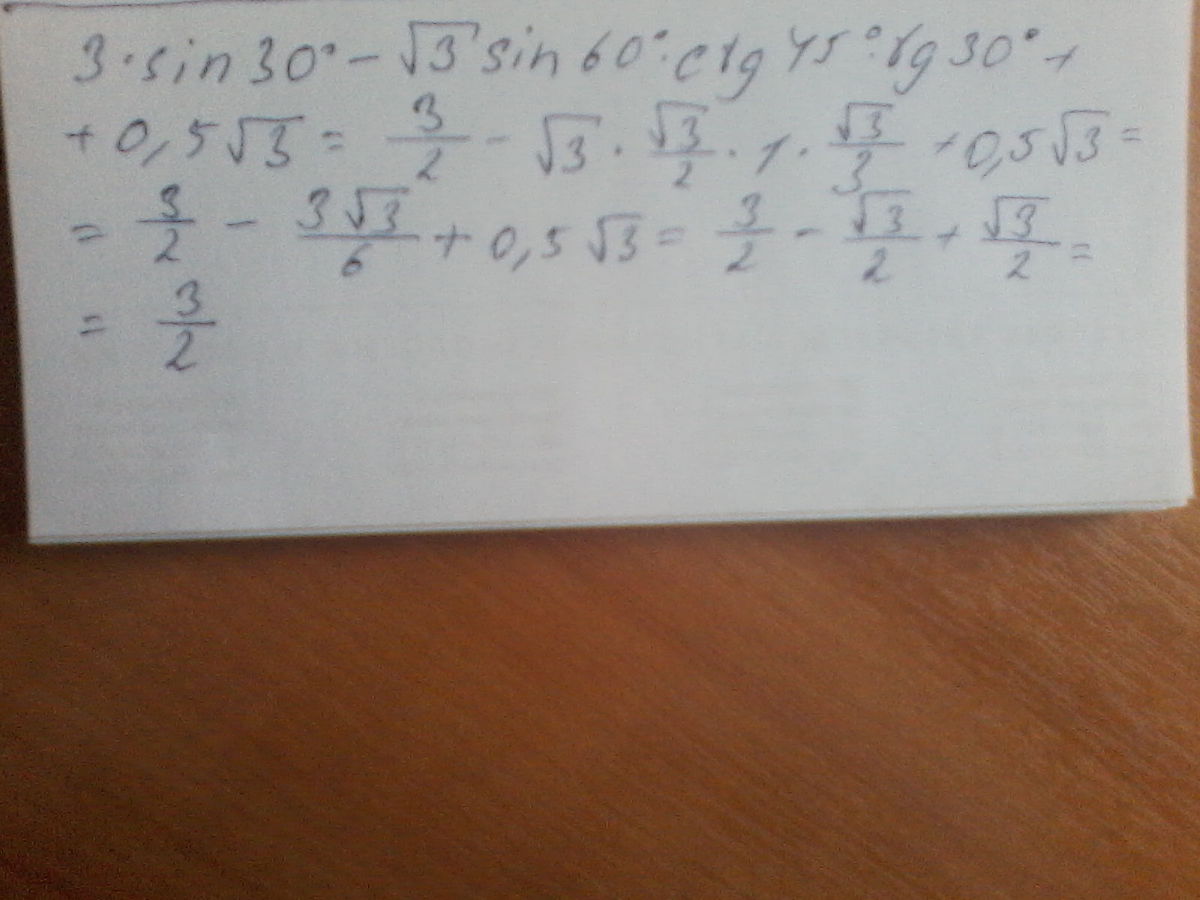 3·sin30°-√3 sin60°·ctg45°·tg30°+
+0,5√3 = 3/2 - √3 · √3/2 · 1 · √3/3 + 0,5√3 =
= 3/2 - 3√3/6 + 0,5√3 = 3/2 - √3/2 + √3/2 =
= 3/2